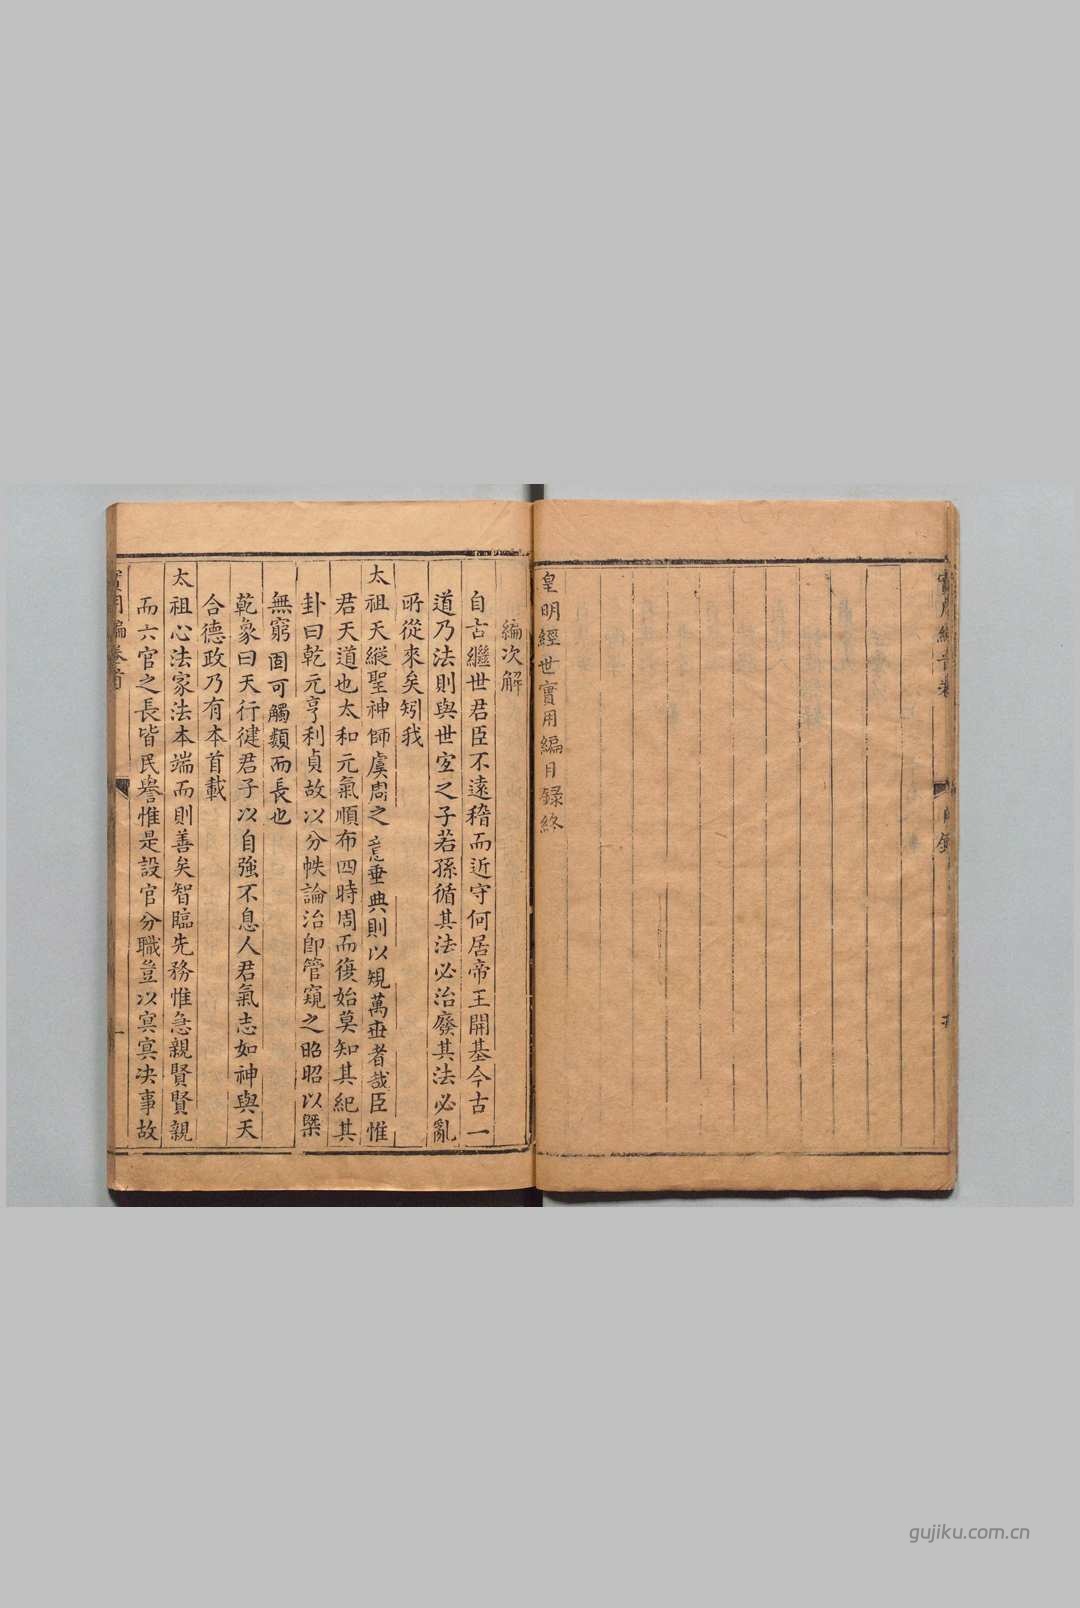 皇明經世實用編目錄終
編次解
自古繼世君臣不遠稽而近守何居帝王開基今古一
道乃法則與世宐之子若孫循其法必治廢其法必亂
所從來矣矧我
太祖天縱聖神師虞周之意垂典則以䂓萬世者哉臣惟
君天道也太和元氣順布四時周而復始莫知其紀其
卦曰乾元亨利貞故以分帙論治卽管窺之昭昭以槩
無窮固可觸類而長也
乾象曰天行健君子以自強不息人君氣志如神與天
合德政乃有本首載
太祖心法家法本端而則善矣智臨先務惟急親賢賢親
而六官之長皆民譽惟是設官分職豈以冥冥决事故
實用編卷首
一
gujiku.com.cn